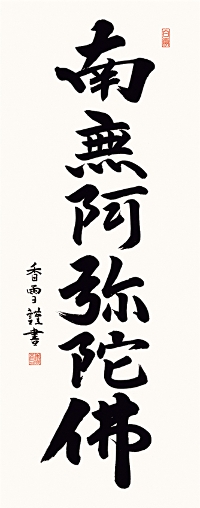 南無阿弥陀佛
香雪謹書